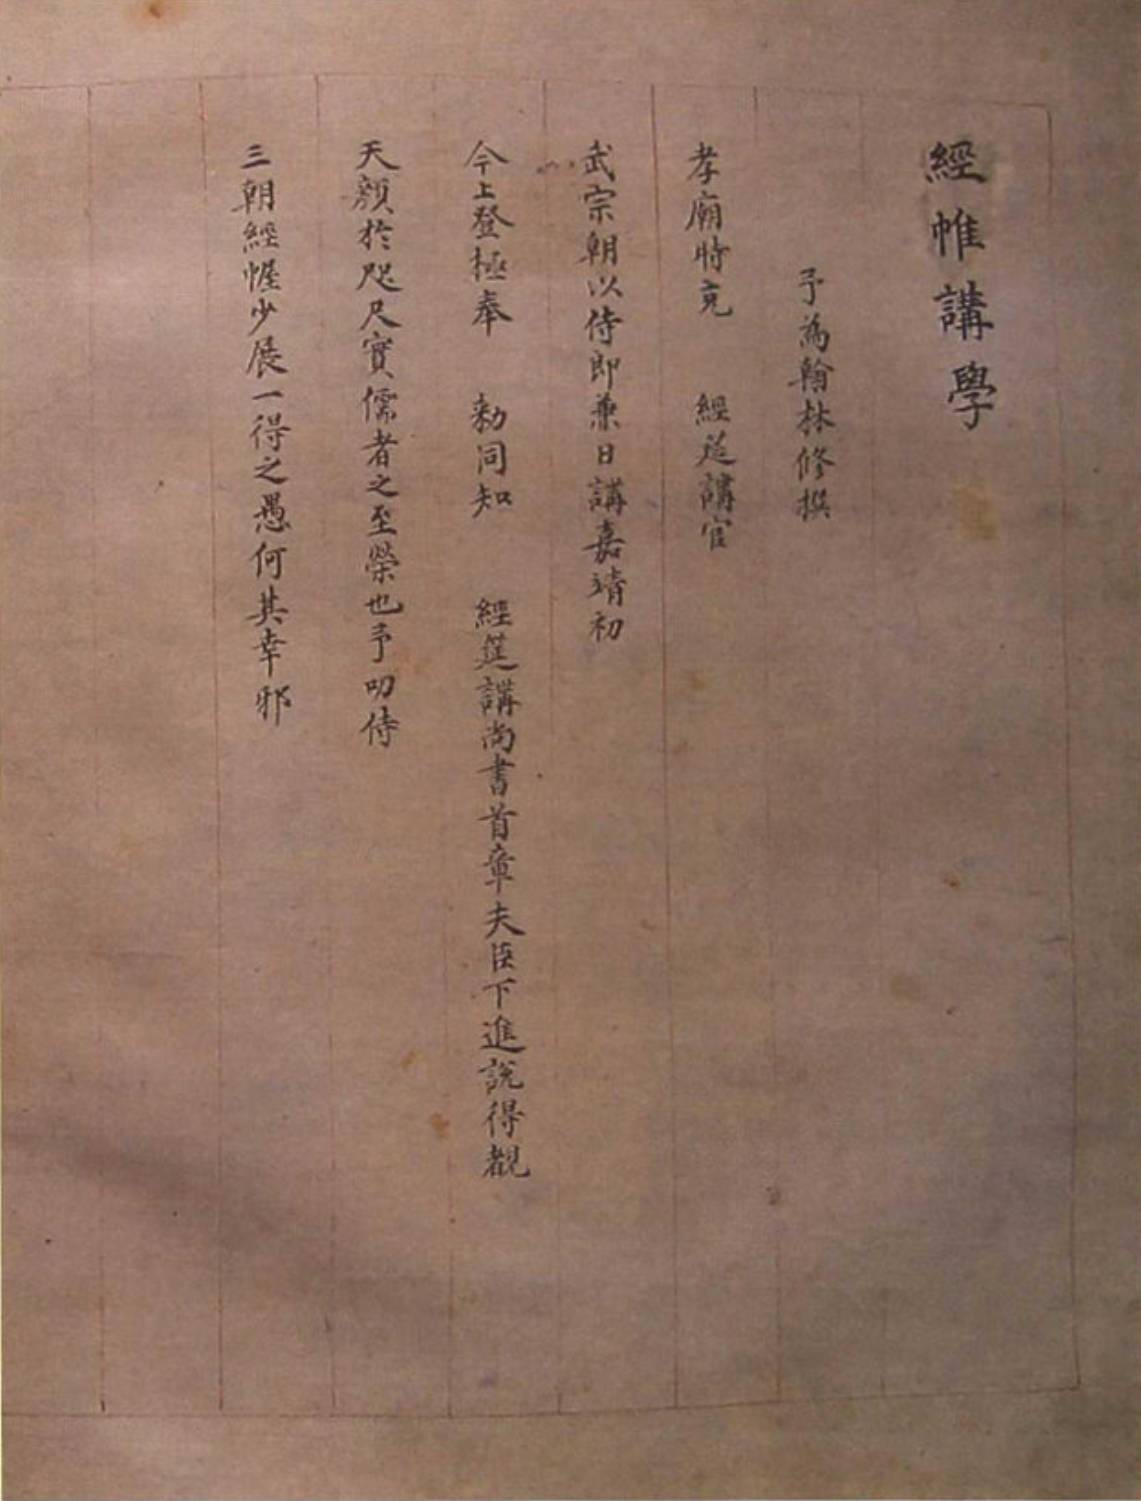 經帷講學
予為翰林修撰
孝廟時充 經筵講官
武宗朝以侍郎兼日講嘉靖初
今上登極奉 勑同知 經筵講尚書首章夫臣下進說得覩
天顏於咫尺實儒者之至榮也予叨侍
三朝經幄少展一得之愚何其幸邪